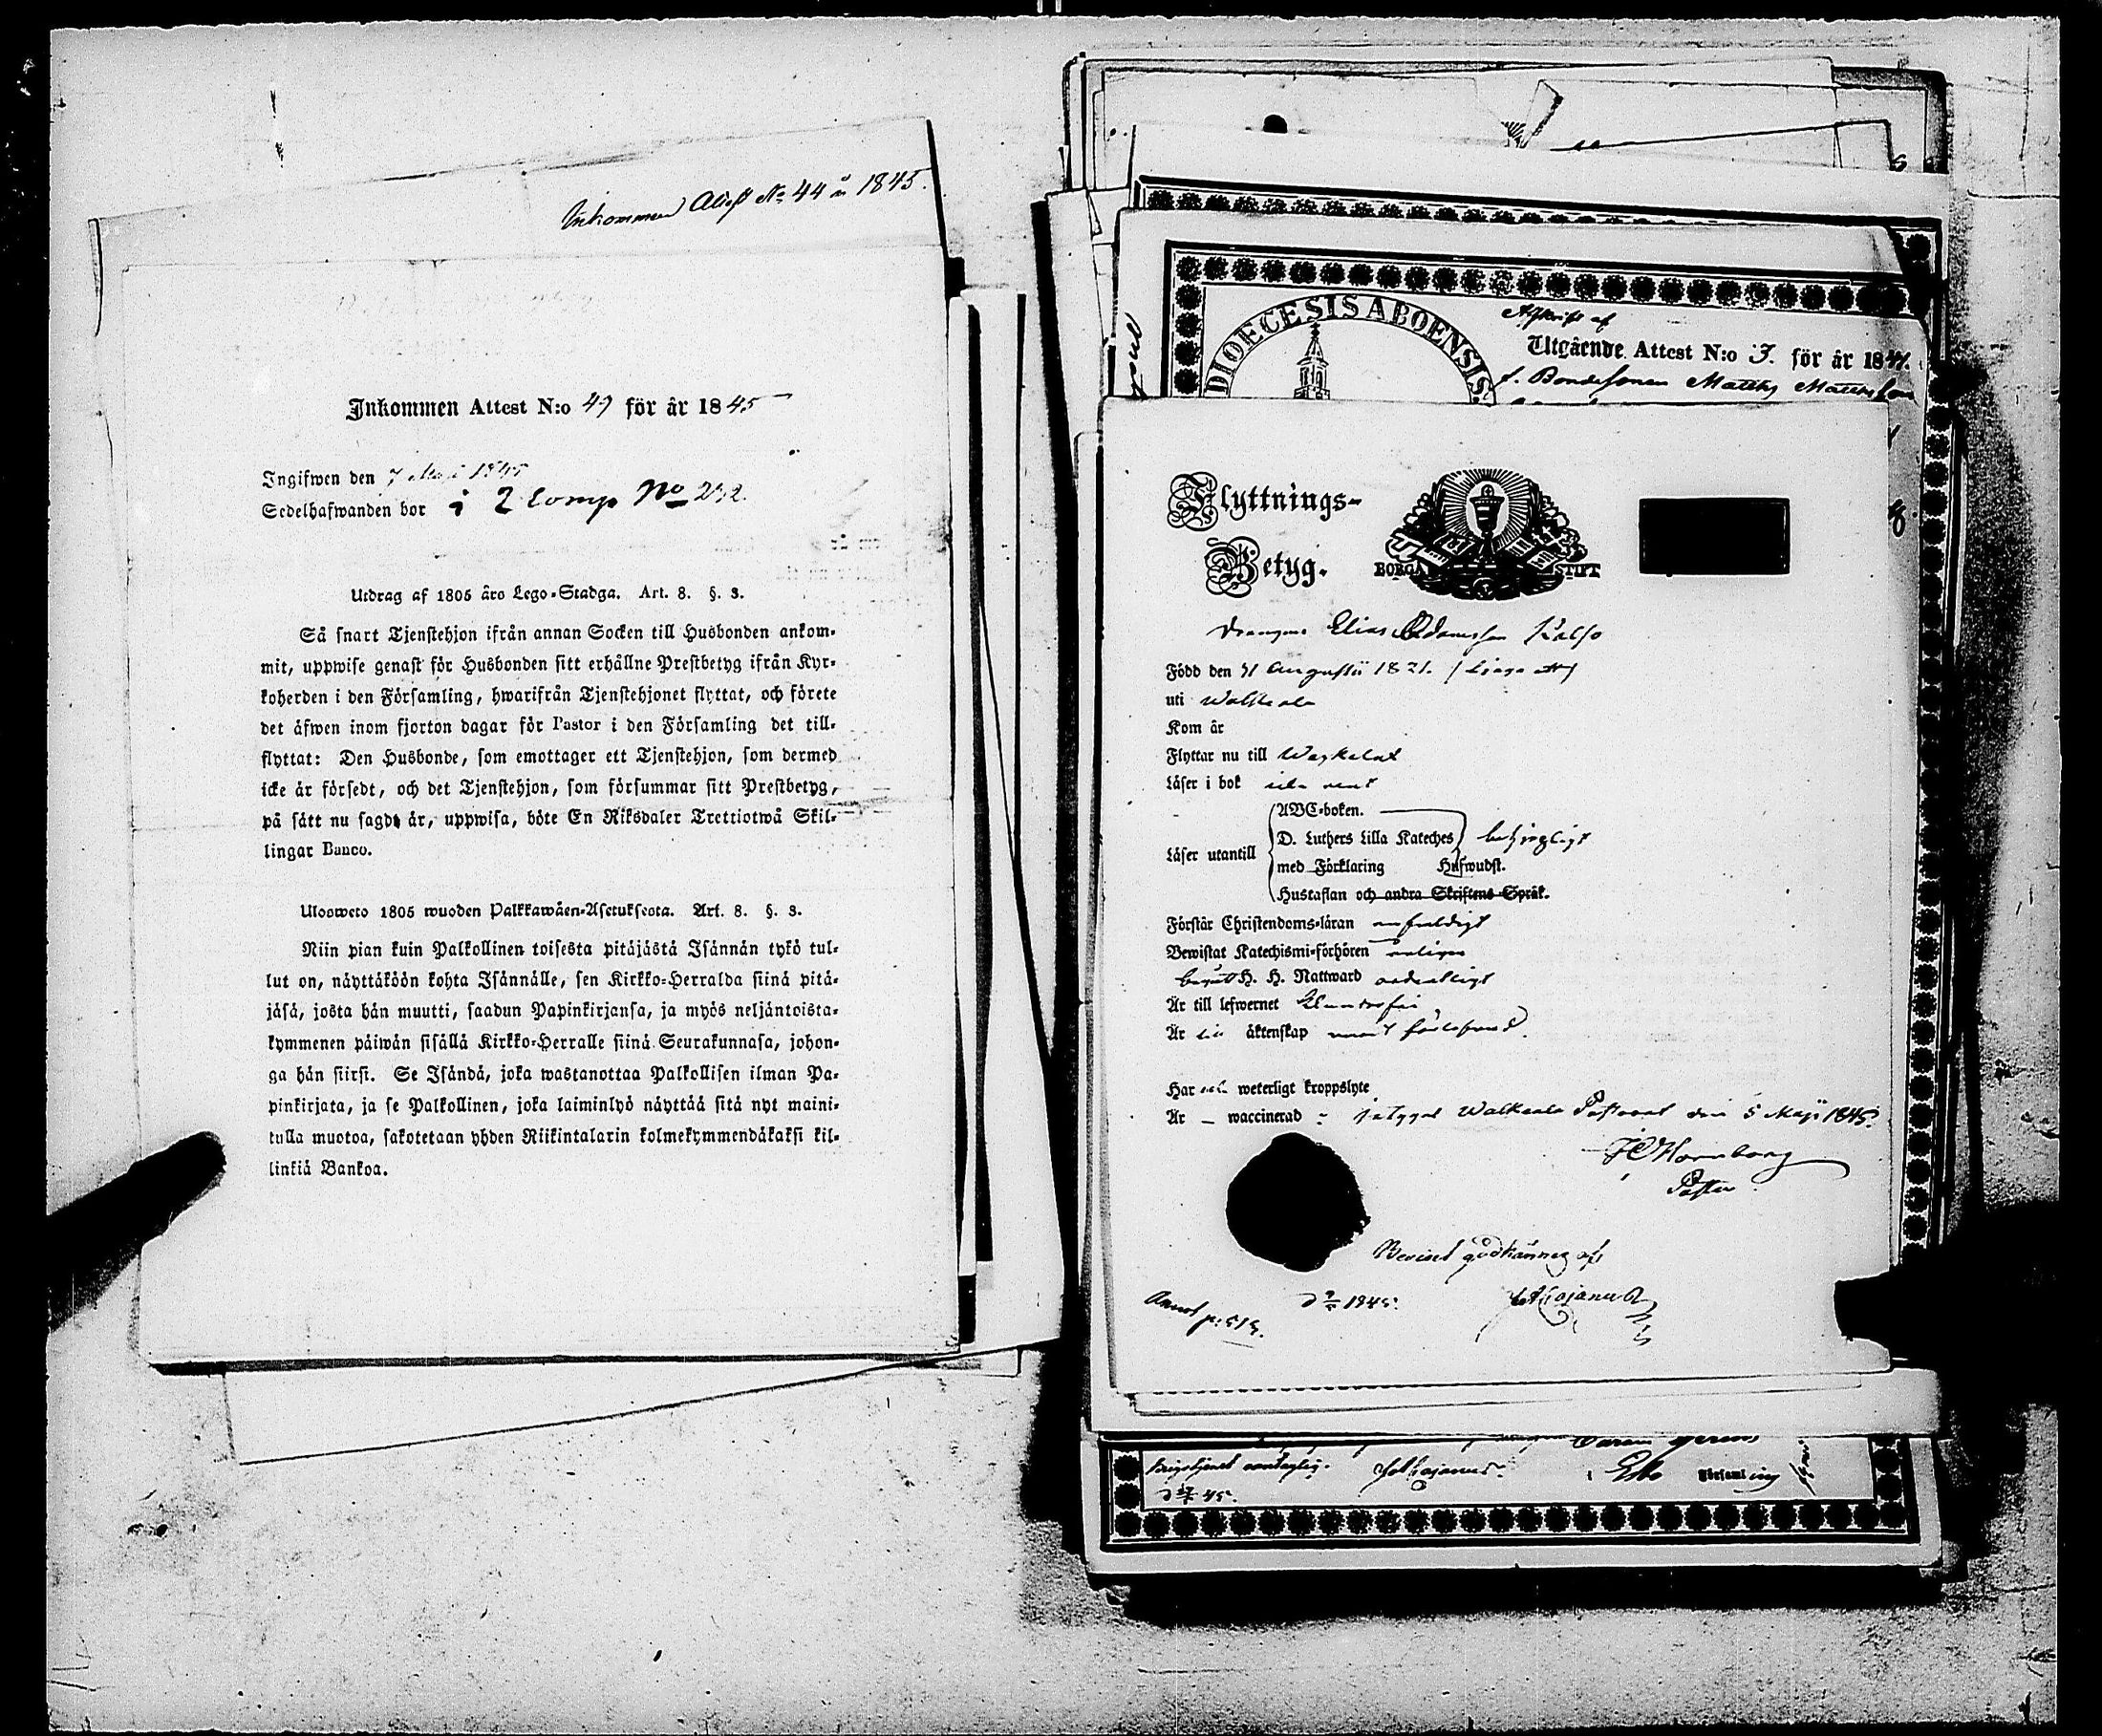 Inkommen Attest No 44 år 1845.
Inkommen Attest N:o 49 för år 1845
Ingifwen den 7 Maji 1845
Sedelhafwanden bor i 2 Comp No 232.
Utdrag af 1805 års Lego-Stadga. Art. 8. §. 3.
Så snart Tjenstehjon ifrån annan Socken till Husbonden ankom-
mit, uppwise genast för Husbonden sitt erhållne Prestbetyg ifrån Kyr-
koherden i den Församling, hwarifrån Tjenstehjonet flyttat, och förete
det äfwen inom fjorton dagar för Pastor i den Församling det till-
flyttat: Den Husbonde, som emottager ett Tjenstehjon, som dermed
icke är försedt, och det Tjenstehjon, som försummar sitt Prestbetyg,
på sätt nu sagdt är, uppwisa, böte En Riksdaler Trettiotwå Skil-
lingar Banco.
Ulosweto 1805 wuoden Palkkawäen-Asetuksesta. Art. 8. §. 3.
Niin pian kuin Palkollinen toisesta pitäjästä Isännän tykö tul-
lut on, näyttäköön kohta Isännälle, sen Kirkko-Herralda siinä pitä-
jäsä, josta hän muutti, saadun Papinkirjansa, ja myös neljäntoista-
kymmenen päiwän sisällä Kirkko-Herralle siinä Seurakunnasa, johon-
ga hän siirsi. Se Isändä, joka wastanottaa Palkollisen ilman Pa-
pinkirjata, ja se Palkollinen, joka laiminlyö näyttää sitä nyt maini-
tulla muotoa, sakotetaan yhden Riikintalarin kolmekymmendäkaksi kil-
linkiä Bankoa.
DIOECESIS ABOENSIS.
Afskrift af
Utgående Attest N:o 3. för år 1844.
f. Bondesonen Matths Mattsson
Flyttnings-
Betyg.
BORGÅ STIFT
Drängen Elias Adamsson Kalso
Född den 31 Augusti 1821.
uti Walkeala
Kom år
Flyttar nu till Weckelax
Läser i bok
ABC-boken.
D. Luthers Lilla Kateches behjelpligt
Läser utantill
med Förklaring Hufwudst.
Hustaflan och andra Skriftens Språk.
Förstår Christendoms-läran enfaldigt
Bewistat Katechismi-förhören årligen
begått H. H. Nattward ordentligt
Är till lefwernet klanderfri
Är till äktenskap förlofwad.
Har weterligt kroppslyte
Är – waccinerad Walkeala Pastorat den 5 Maji 1845.
Hornborg
Pastor
Beviset godkännes af
1845. Cajanus
Annot p: 515.
Cajanus. i Esbo Församling
45.